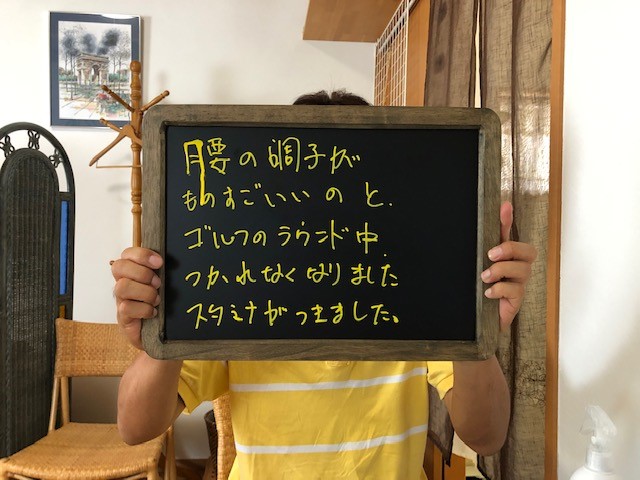 腰の調子が
ものすごいいのと、
ゴルフのラウンド中、
つかれなくなりました
スタミナがつきました。